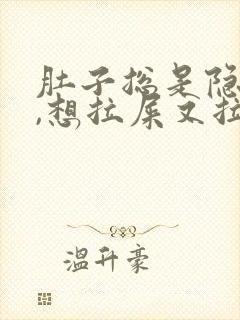 肚子总是隐
,想拉屎又拉
温升豪